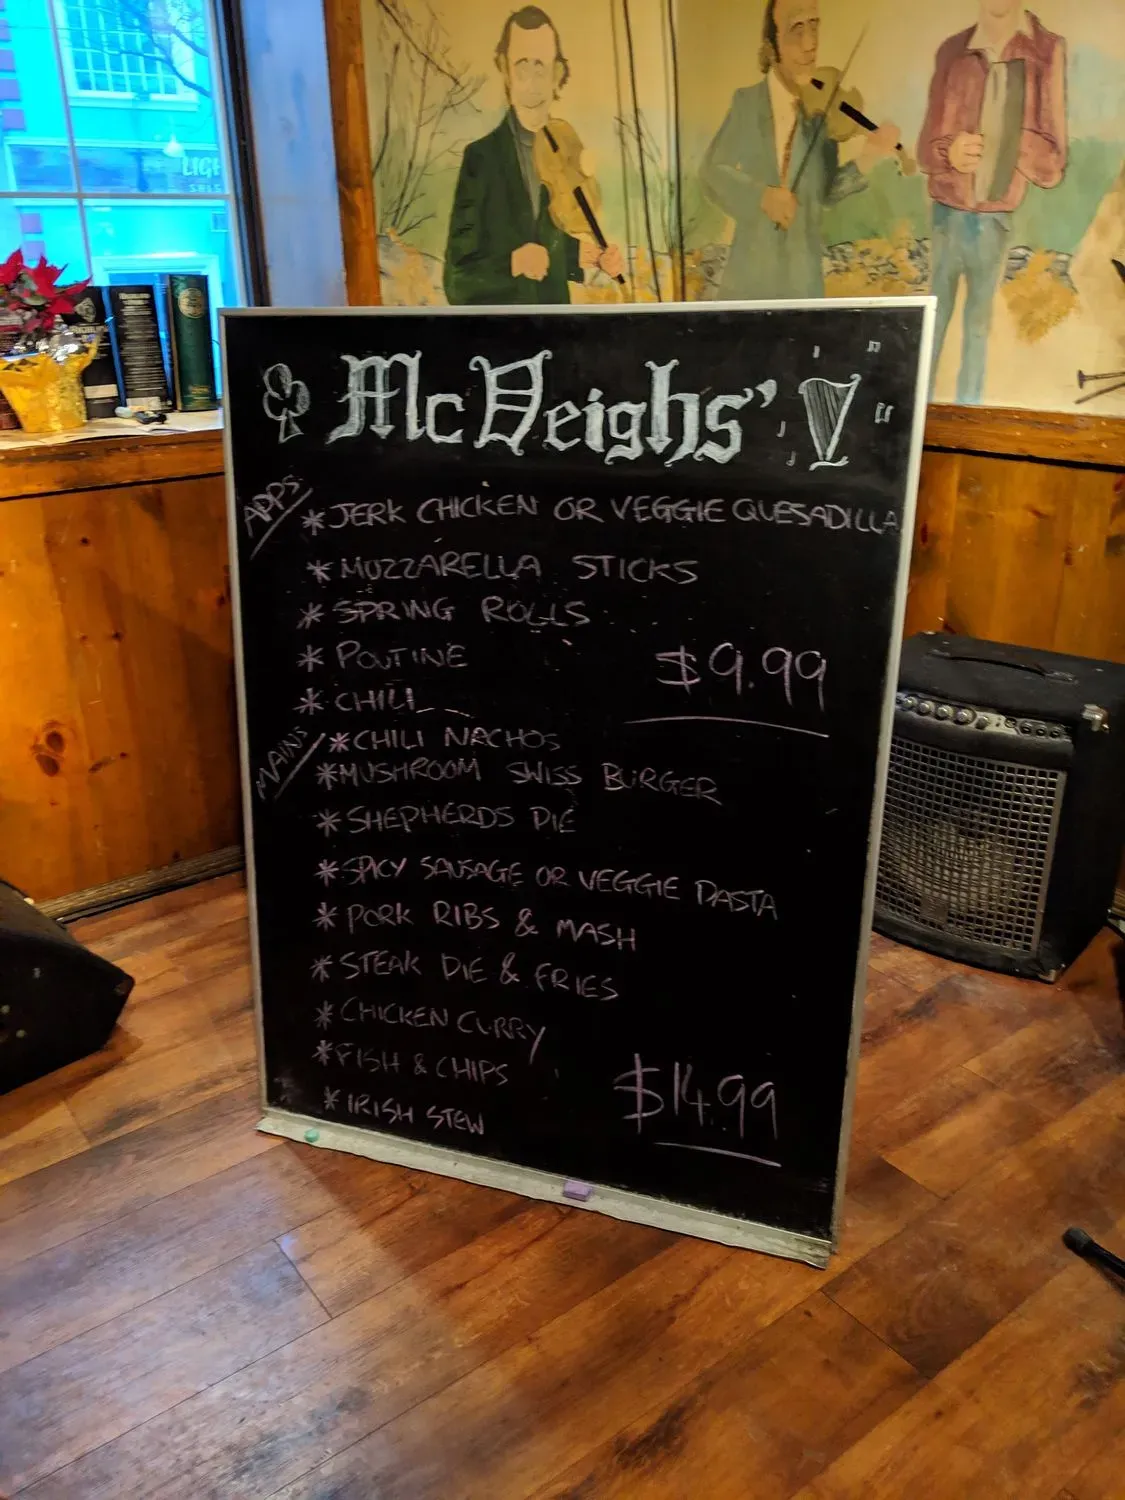 LIGH
McVeighs'
APPS
* JERK CHICKEN OR VEGGIE QUESADILLA
* MOZZARELLA STICKS
* SPRING ROLLS
* POUTINE
$9.99
* CHILI
MAINS
* CHILI NACHOS
* MUSHROOM SWISS BURGER
* SHEPHERDS PIE
* SPICY SAUSAGE OR VEGGIE PASTA
* PORK RIBS & MASH
* STEAK PIE & FRIES
* CHICKEN CURRY
* FISH & CHIPS
$14.99
* IRISH STEW